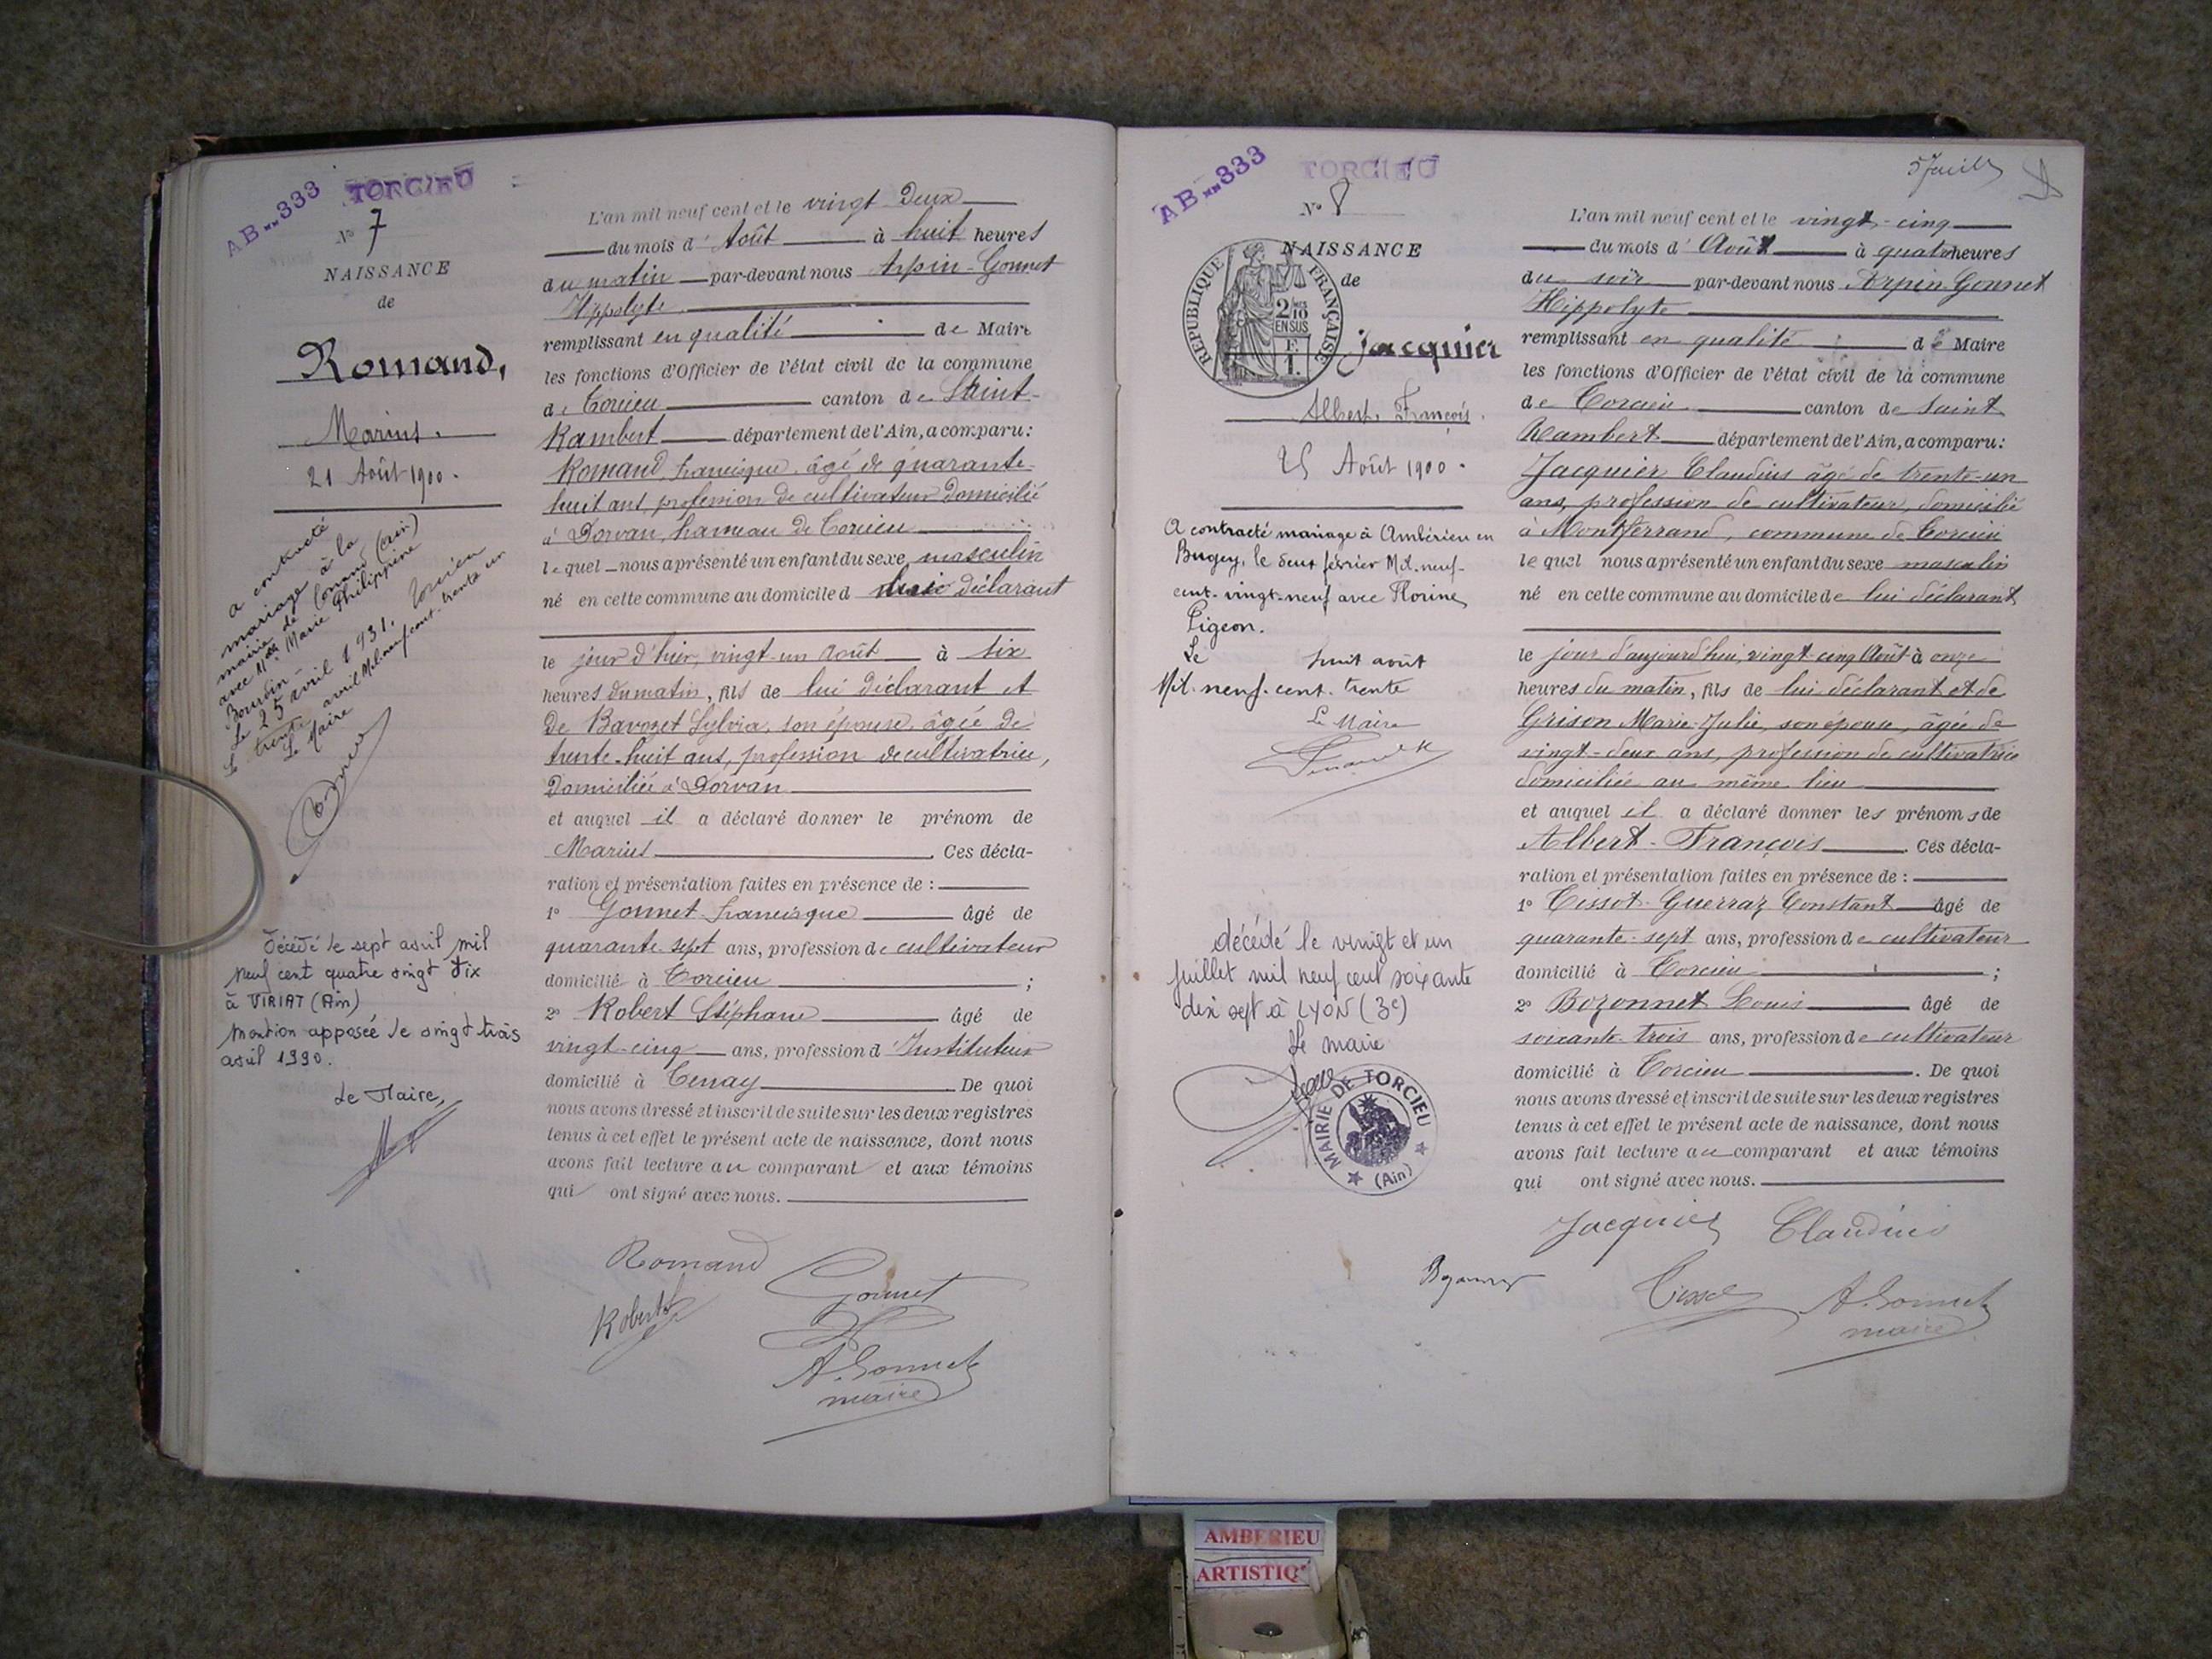 AB-333 TORCIEU
N° 7
NAISSANCE
de
Romand,
Marius.
21 Août 1900.
a contracté
mariage à la
mairie de Conand (Ain)
avec Mlle Marie Philippine
Bourdin
Le 25 avril 1931. Torcieu
Le trente avril Mil neuf cent trente un
Le Maire
Décédé le sept avril mil
neuf cent quatre vingt dix
à VIRIAT (Ain)
Mention apposée le vingt trois
avril 1990.
Le Maire,
L'an mil neuf cent et le vingt Deux
du mois d'Août à huit heures
du matin par-devant nous Arpin-Gonnet
Hippolyte
remplissant en qualité de Maire
les fonctions d'Officier de l'état civil de la commune
de Torcieu canton de Saint-
Rambert département de l'Ain, a comparu:
Romand francisque âgé de quarante-
huit ans, profession de cultivateur domicilié
à Dorvan, hameau de Torcieu
lequel nous a présenté un enfant du sexe masculin
né en cette commune au domicile d déclarant
le jour d'hier, vingt-un Août à six
heures du matin, fils de lui déclarant et
de Bavozet Sylvia, son épouse, âgée de
trente-huit ans, profession de cultivatrice,
domiciliée à Dorvan
et auquel il a déclaré donner le prénom de
Marius. Ces décla-
ration et présentation faites en présence de :
1° Gonnet francisque âgé de
quarante-sept ans, profession de cultivateur
domicilié à Torcieu ;
2° Robert Stéphane âgé de
vingt-cinq ans, profession d'Instituteur
domicilié à Tenay. De quoi
nous avons dressé et inscrit de suite sur les deux registres
tenus à cet effet le présent acte de naissance, dont nous
avons fait lecture au comparant et aux témoins
qui ont signé avec nous.
Romand
Gonnet
Robert
A. Gonnet
maire
AB-333 TORCIEU
N° 8
NAISSANCE
de
REPUBLIQUE FRANÇAISE
2/10 MES
EN SUS
F.
1.
Jacquier
Albert, François.
25 Août 1900.
A contracté mariage à Ambérieu en
Bugey, le deux février Mil-neuf-
cent-vingt-neuf avec Florine
Pigeon.
Le huit août
Mil-neuf-cent-trente
Le Maire
décédé le vingt et un
juillet mil neuf cent soixante
dix sept à LYON (3e)
Le maire
MAIRIE DE TORCIEU
(Ain)
L'an mil neuf cent et le vingt-cinq
du mois d'Août à quatre heures
du soir par-devant nous Arpin Gonnet
Hippolyte
remplissant en qualité de Maire
les fonctions d'Officier de l'état civil de la commune
de Torcieu canton de Saint
Rambert département de l'Ain, a comparu:
Jacquier Claudius âgé de trente-un
ans, profession de cultivateur, domicilié
à Montferrand, commune de Torcieu
lequel nous a présenté un enfant du sexe masculin
né en cette commune au domicile de lui déclarant
le jour d'aujourd'hui, vingt-cinq Août à onze
heures du matin, fils de lui déclarant et de
Grison Marie-Julie, son épouse, âgée de
vingt-deux ans, profession de cultivatrice
domiciliée au même lieu
et auquel il a déclaré donner les prénoms de
Albert-François. Ces décla-
ration et présentation faites en présence de :
1° Tissot-Guerraz Constant âgé de
quarante-sept ans, profession de cultivateur
domicilié à Torcieu ;
2° Bozonnet Louis âgé de
soixante-trois ans, profession de cultivateur
domicilié à Torcieu. De quoi
nous avons dressé et inscrit de suite sur les deux registres
tenus à cet effet le présent acte de naissance, dont nous
avons fait lecture au comparant et aux témoins
qui ont signé avec nous.
Jacquier Claudius
Tissot
A. Gonnet
maire
AMBERIEU
ARTISTIQ